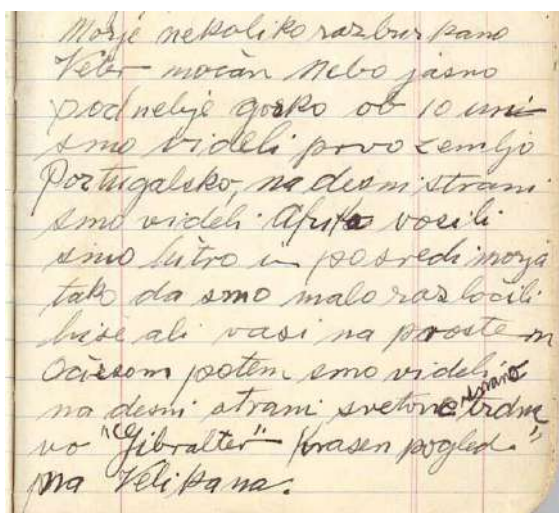 Morje nekoliko razburkano
Veter močan Nebo jasno
podnebje gorko ob 10 uri
smo videli prvo zemljo
Portugalsko, na desni strani
smo videli Afriko vosili
smo hitro in posredi morja
tako da smo malo razločili
hiše ali vasi na prostem
Očesom potem smo videli
na desni strani svetovno znano trdnja
vo "Gibralter" krasen pogled"
na Velikana.